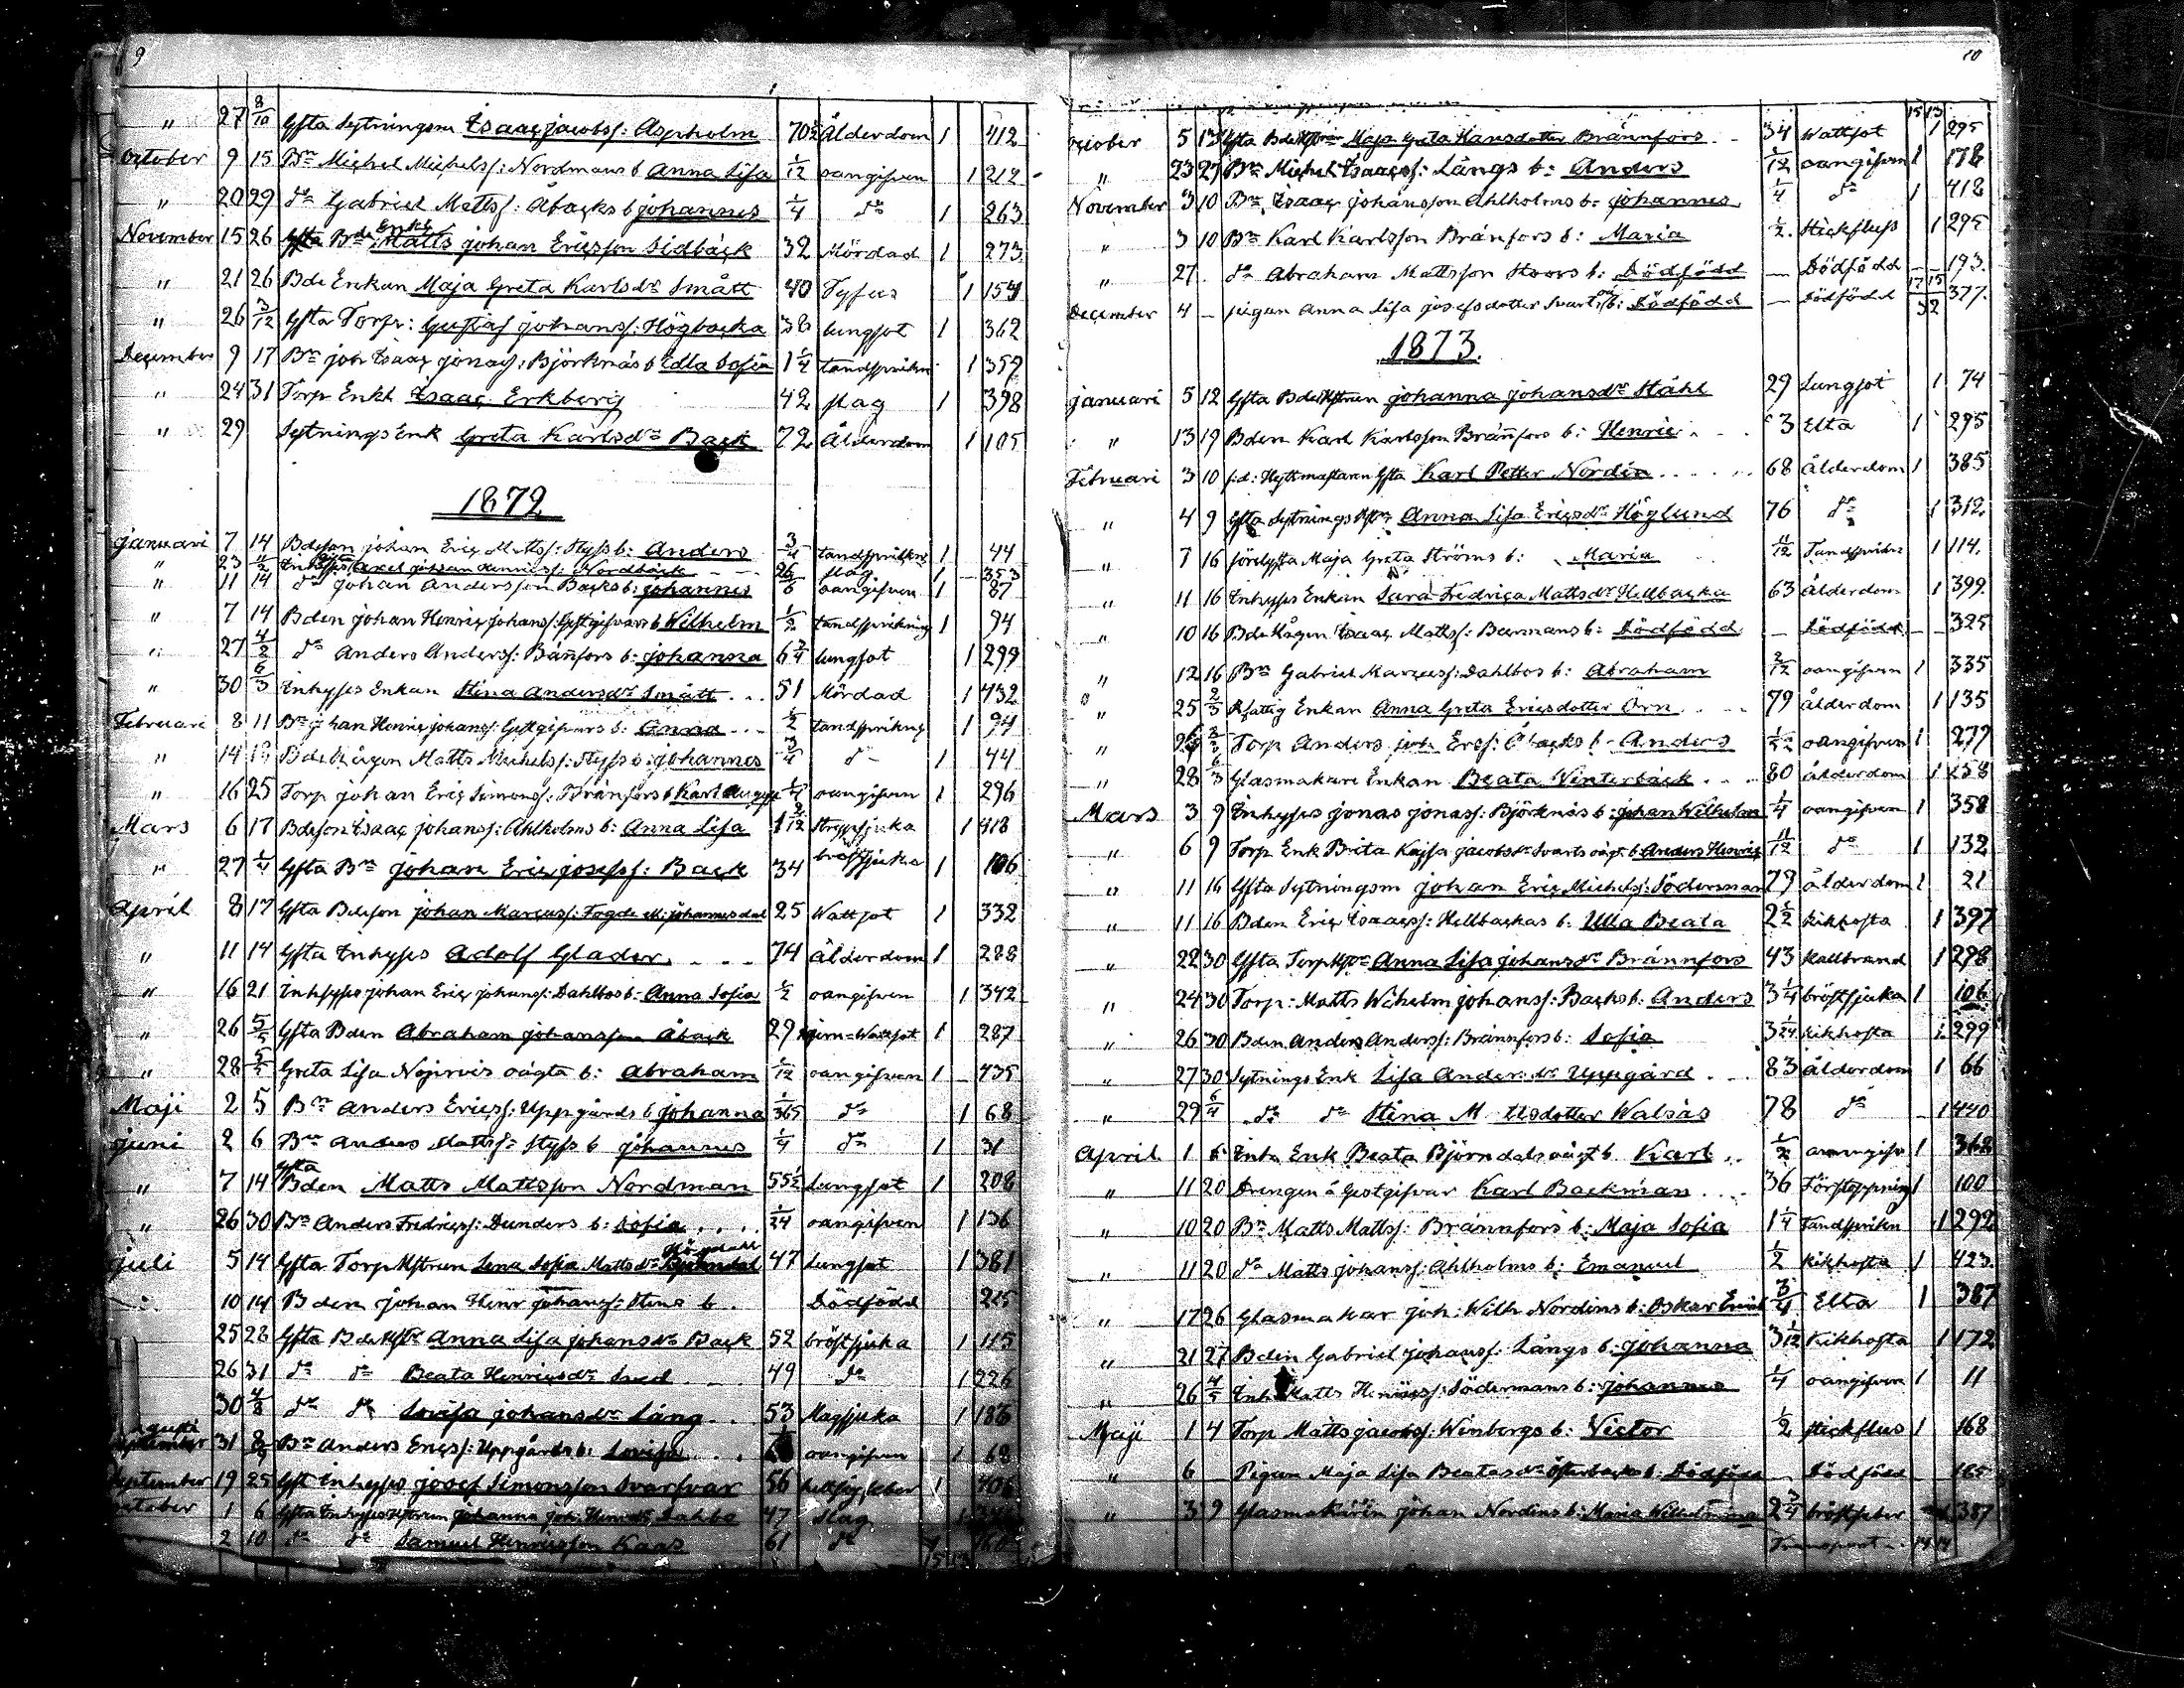 9
" 27 8/10 Gfta Sytningsm Isaac Jacobss: Aspholm 70 1/2 Ålderdom 1 412
October 9 15 Bn Michel Michelss: Nordmans b Anna Lisa 1/12 oangifven 1 212
" 20 29 do Gabriel Mattss: Åbacks b Johannes 1/4 do 1 263
November 15 26 Bde Enkl Matts Johan Ericsson Sidbäck 32 Mördad 1 273
" 21 26 Bde Enkan Maja Greta Karlsdr Smått 40 Tyfus 1 154
" 26 3/12 Gfta Torpr: Gustaf Johanss: Högbacka 38 lungsot 1 362
December 9 17 Bn Joh Isaac Jonass: Björknäs b Edla Sofia 1 1/4 tandsprikn 1 359
" 24 31 Torp Enkl Isaac Erkberg 42 slag 1 398
" 29 Sytnings Enk Greta Karlsdr Back 72 Ålderdom 1 105
1872
Januari 7 14 Bdeson Johan Eric Mattss: Styfs b: Anders 3/4 tandsprikn 1 44
" 23 Inhyses Axel Johan Henricss: Nordbäck 26 slag 1 353
" 11 14 do Johan Andersson Backs b: Johannes oangifven 1 87
" 7 14 Bden Johan Henric Johanss: Gestgifvars b Wilhelm 1/2 tandsprikning 1 94
" 27 4/2 do Anders Anderss: Bränfors b: Johanna 6 3/4 lungsot 1 299
" 30 6/3 Inhyses Enkan Stina Andersdr Smått 51 Mördad 1 432
Februari 8 11 Bn Johan Henric Johanss: Gestgifvars b: Anna 1/2 tandsprikng 1 94
" 14 18 Bde Mågen Matts Michelss: Styfs b: Johannes 3/4 do 1 44
" 16 25 Torp Johan Eric Simonss: Bränfors b Karl August 1/4 oangifven 1 296
Mars 6 17 Bdeson Isaac Johanss: Ahlholms b: Anna Lisa 1 2/12 strypsjuka 1 418
" 27 1/4 Gfta Bn Johan Eric Josefss: Back 34 bröstsjuka 1 106
April 8 17 Gfta Bdeson Johan Marcuss: Fogde M: Johannesdal 25 Wattsot 1 332
" 11 14 Gfta Inhyses Adolf Glader 74 Ålderdom 1 288
" 16 21 Inhyses Johan Eric Johanss: Dahlbos b: Anna Sofia 1/2 oangifven 1 342
" 26 5/5 Gfta Bden Abraham Johansson Åback 29 Wattsot 1 287
" 28 5/5 Greta Lisa oägta b: Abraham 1/12 oangifven 1 435
Maji 2 5 Bn Anders Ericss: Uppgårds b Johanna 1/365 do 1 68
Juni 2 6 Bn Anders Mattss: Styfs b Johannes 1/4 do 1 31
" 7 14 Gfta Bden Matts Mattsson Nordman 55 1/2 Lungsot 1 208
" 26 30 Bn Anders Fredricss: Dunders b: Sofia 1/24 oangifven 1 136
Juli 5 14 Gfta Torp Hstrun Lena Sofia Mattsdr 47 Lungsot 1 381
10 14 Bden Johan Henr Johanss: Stens b Dödfödd 215
25 28 Gfta Bde Hstr Anna Lisa Johansdr Back 52 bröstsjuka 1 115
26 31 do do Beata Henricsdr Sved 49 do 1 226
30 4/8 do do Lovisa Johansdr Lång 53 Magsjuka 1 186
Augusti 31 8/9 Bn Anders Ericss: Uppgårds b: Lovisa oangifven 1 68
September 19 25 Gft Inhyses Josef Simonsson Svarfvar 56 1 406
October 1 6 Gfta Inhyses Hstrun Johanna Joh: Henrdr Dahlbo 47 slag 1
2 10 do do Samuel Henricsson Kaas 61 do 160
10
15 13
October 5 13 Gfta Bde Hstrun Maja Greta Hansdotter Brännfors 34 Wattsot 1 295
" 23 27 Bn Michel Isaacss: Långs b: Anders 1/12 oangifven 1 178
November 3 10 Bn Isaac Johansson Ahlholms b: Johannes 1/4 do 1 418
" 3 10 Bn Karl Karlsson Bränfors b: Maria 1/2 Stickfluss 1 295
" 27 do Abraham Mattsson Stoors b: Dödfödd — Dödfödd — 193
December 4 — pigan Anna Lisa Josefsdotter Svarts b: Dödfödd — Dödfödd 17 15 32 377
1873.
Januari 5 12 Gfta Bde Hstrun Johanna Johansdr Ståhl 29 Lungsot 1 74
" 13 19 Bden Karl Karlsson Bränfors b: Henric 3 Elta 1 295
Februari 3 10 f:d: Hyttmästaren Gfta Karl Petter Nordin 68 ålderdom 1 385
" 4 9 Gfta Sytnings Hstr Anna Lisa Ericsdr Höglund 76 do 1 312
" 7 16 Maja Greta Ströms b: Maria 11/12 Tandsprikn 1 114
" 11 16 Inhyses Enkan Sara Fredrica Mattsdr Hellbacka 63 ålderdom 1 399
" 10 16 Bde Mågen Isaac Mattss: Beermans b: Dödfödd — Dödfödd — 325
" 12 16 Bn Gabriel Marcuss: Dahlbos b: Abraham 2/12 oangifven 1 335
" 25 2/3 Fattig Enkan Anna Greta Ericsdotter Örn 79 ålderdom 1 135
" 26 2/3 Torp Anders Joh Ercs: Åbacks b: Anders oangifven 1 277
" 28 6/3 Glasmakare Enkan Beata Winterbäck 80 ålderdom 1 258
Mars 3 9 Inhyses Jonas Jonass: Björknäs b: Johan Wilhelm 1/4 oangifven 1 358
" 6 9 Torp Enk Brita Kajsa Jacobsdr Svarts oägt: b: Anders Henric 11/12 do 1 132
" 11 16 Gfta Sytningsm Johan Eric Michelss: Söderman 79 ålderdom 1 21
" 11 16 Bden Eric Isaacss: Hellbackas b: Ulla Beata 2 1/2 kikhosta 1 397
" 22 30 Gfta Torp Hstr Anna Lisa Johansdr Brännfors 43 kallbrand 1 298
" 24 30 Torp: Matts Wilhelm Johanss: Backs b: Anders 3 1/4 bröstsjuka 1 106
" 26 30 Bden Anders Anderss: Brännfors b: Sofia 3 1/24 kikhosta 1 299
" 27 30 Sytnings Enk Lisa Andersdr Uppgård 83 ålderdom 1 66
" 29 6/4 do do Stina Mattsdotter Walsas 78 do 1 440
April 1 6 Inh: Enk Beata Björndals oägt b Karl 1/2 oangifv 1 362
" 11 20 Drengen å Gestgifvar Karl Backman 36 Förstoppning 1 100
" 10 20 Bn Matts Mattss: Brännfors b: Maja Sofia 1 1/4 Tandsprikn 1 292
" 11 20 do Matts Johanss: Ahlholms b: Emanuel 1/2 Kikhosta 1 423
" 17 26 Glasmakar Joh: Wilh Nordins b: Oskar Emil 3/4 Elta 1 387
" 21 27 Bden Gabriel Johanss: Långs b: Johanna 3 1/12 Kikhosta 1 172
" 26 4/5 Inh Matts Henricss: Södermans b: Johannes 1/4 oangifven 1 11
Maji 1 4 Torp Matts Jacobss: Winbergs b: Victor 1/2 stickflus 1 168
" 6 Pigan Maja Lisa Beatasdr Österbacka b: Dödfödd — Dödfödd — 165
" 3 9 Glasmakaren Johan Nordins b: Maria Wilhelmina 2 3/4 bröstfeber 1 387
Transport: 14 14